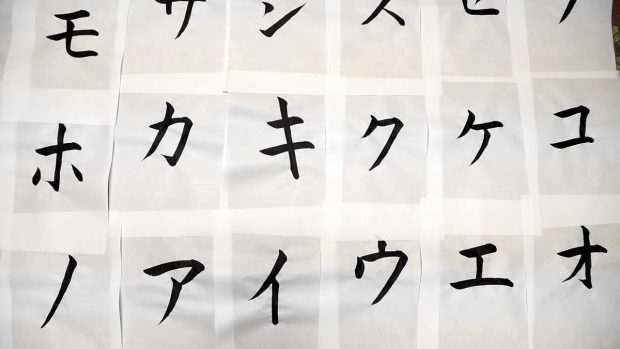 モ サ シ ス セ
ホ カ キ ク ケ コ
ノ ア イ ウ エ オ